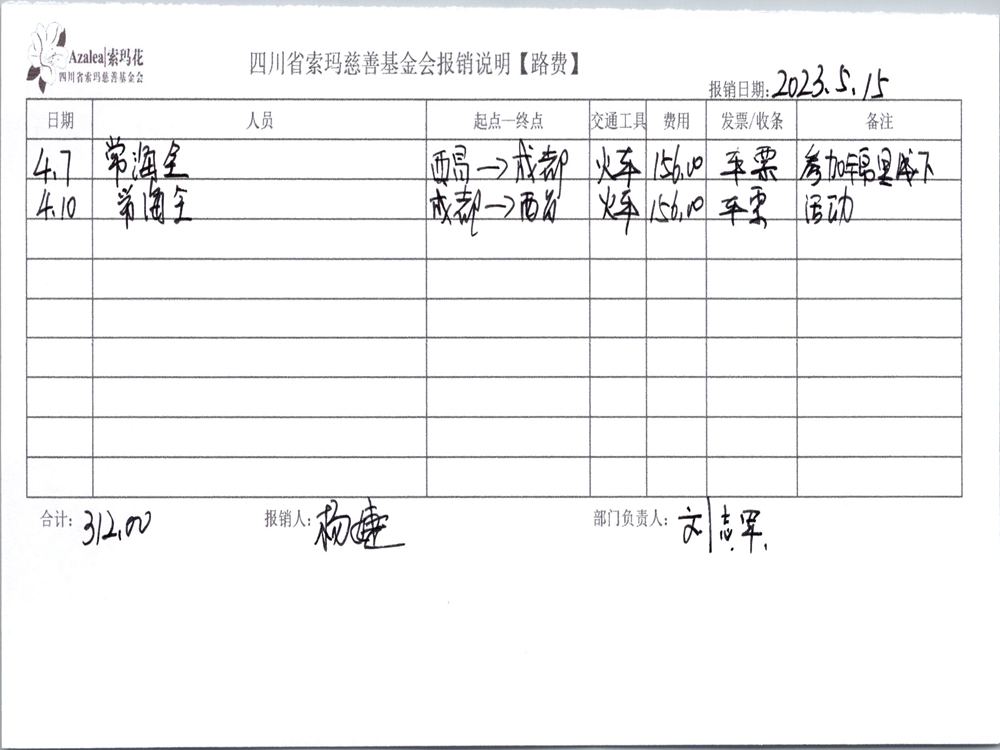 Azalea|索玛花
四川省索玛慈善基金会
四川省索玛慈善基金会报销说明【路费】
报销日期:2023.5.15
日期 人员 起点—终点 交通工具 费用 发票/收条 备注
4.7 常海全 西昌→成都 火车 156.00 车票 参加 线下
4.10 常海全 成都→西昌 火车 156.00 车票 活动
合计: 312.00 报销人: 杨 部门负责人: 刘志军